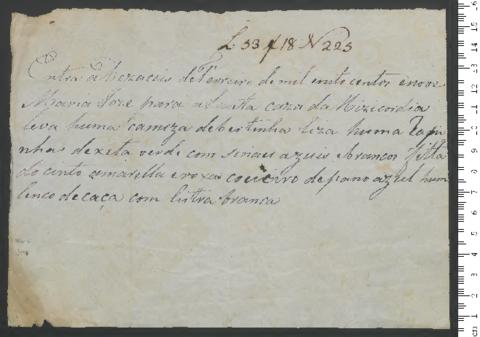 L 33 f 18 N 225
Entra a dezaceis de Fevereiro de mil e oito centos e nove
Maria Joze para a Santa caza da Mizicordia
leva huma camiza de bertinha liza huma
nha de xita verde com sinaes azuis e brancos fitta
do cinto amarella e roxa coueiro de pano azul hum
lenco de caça com listra branca